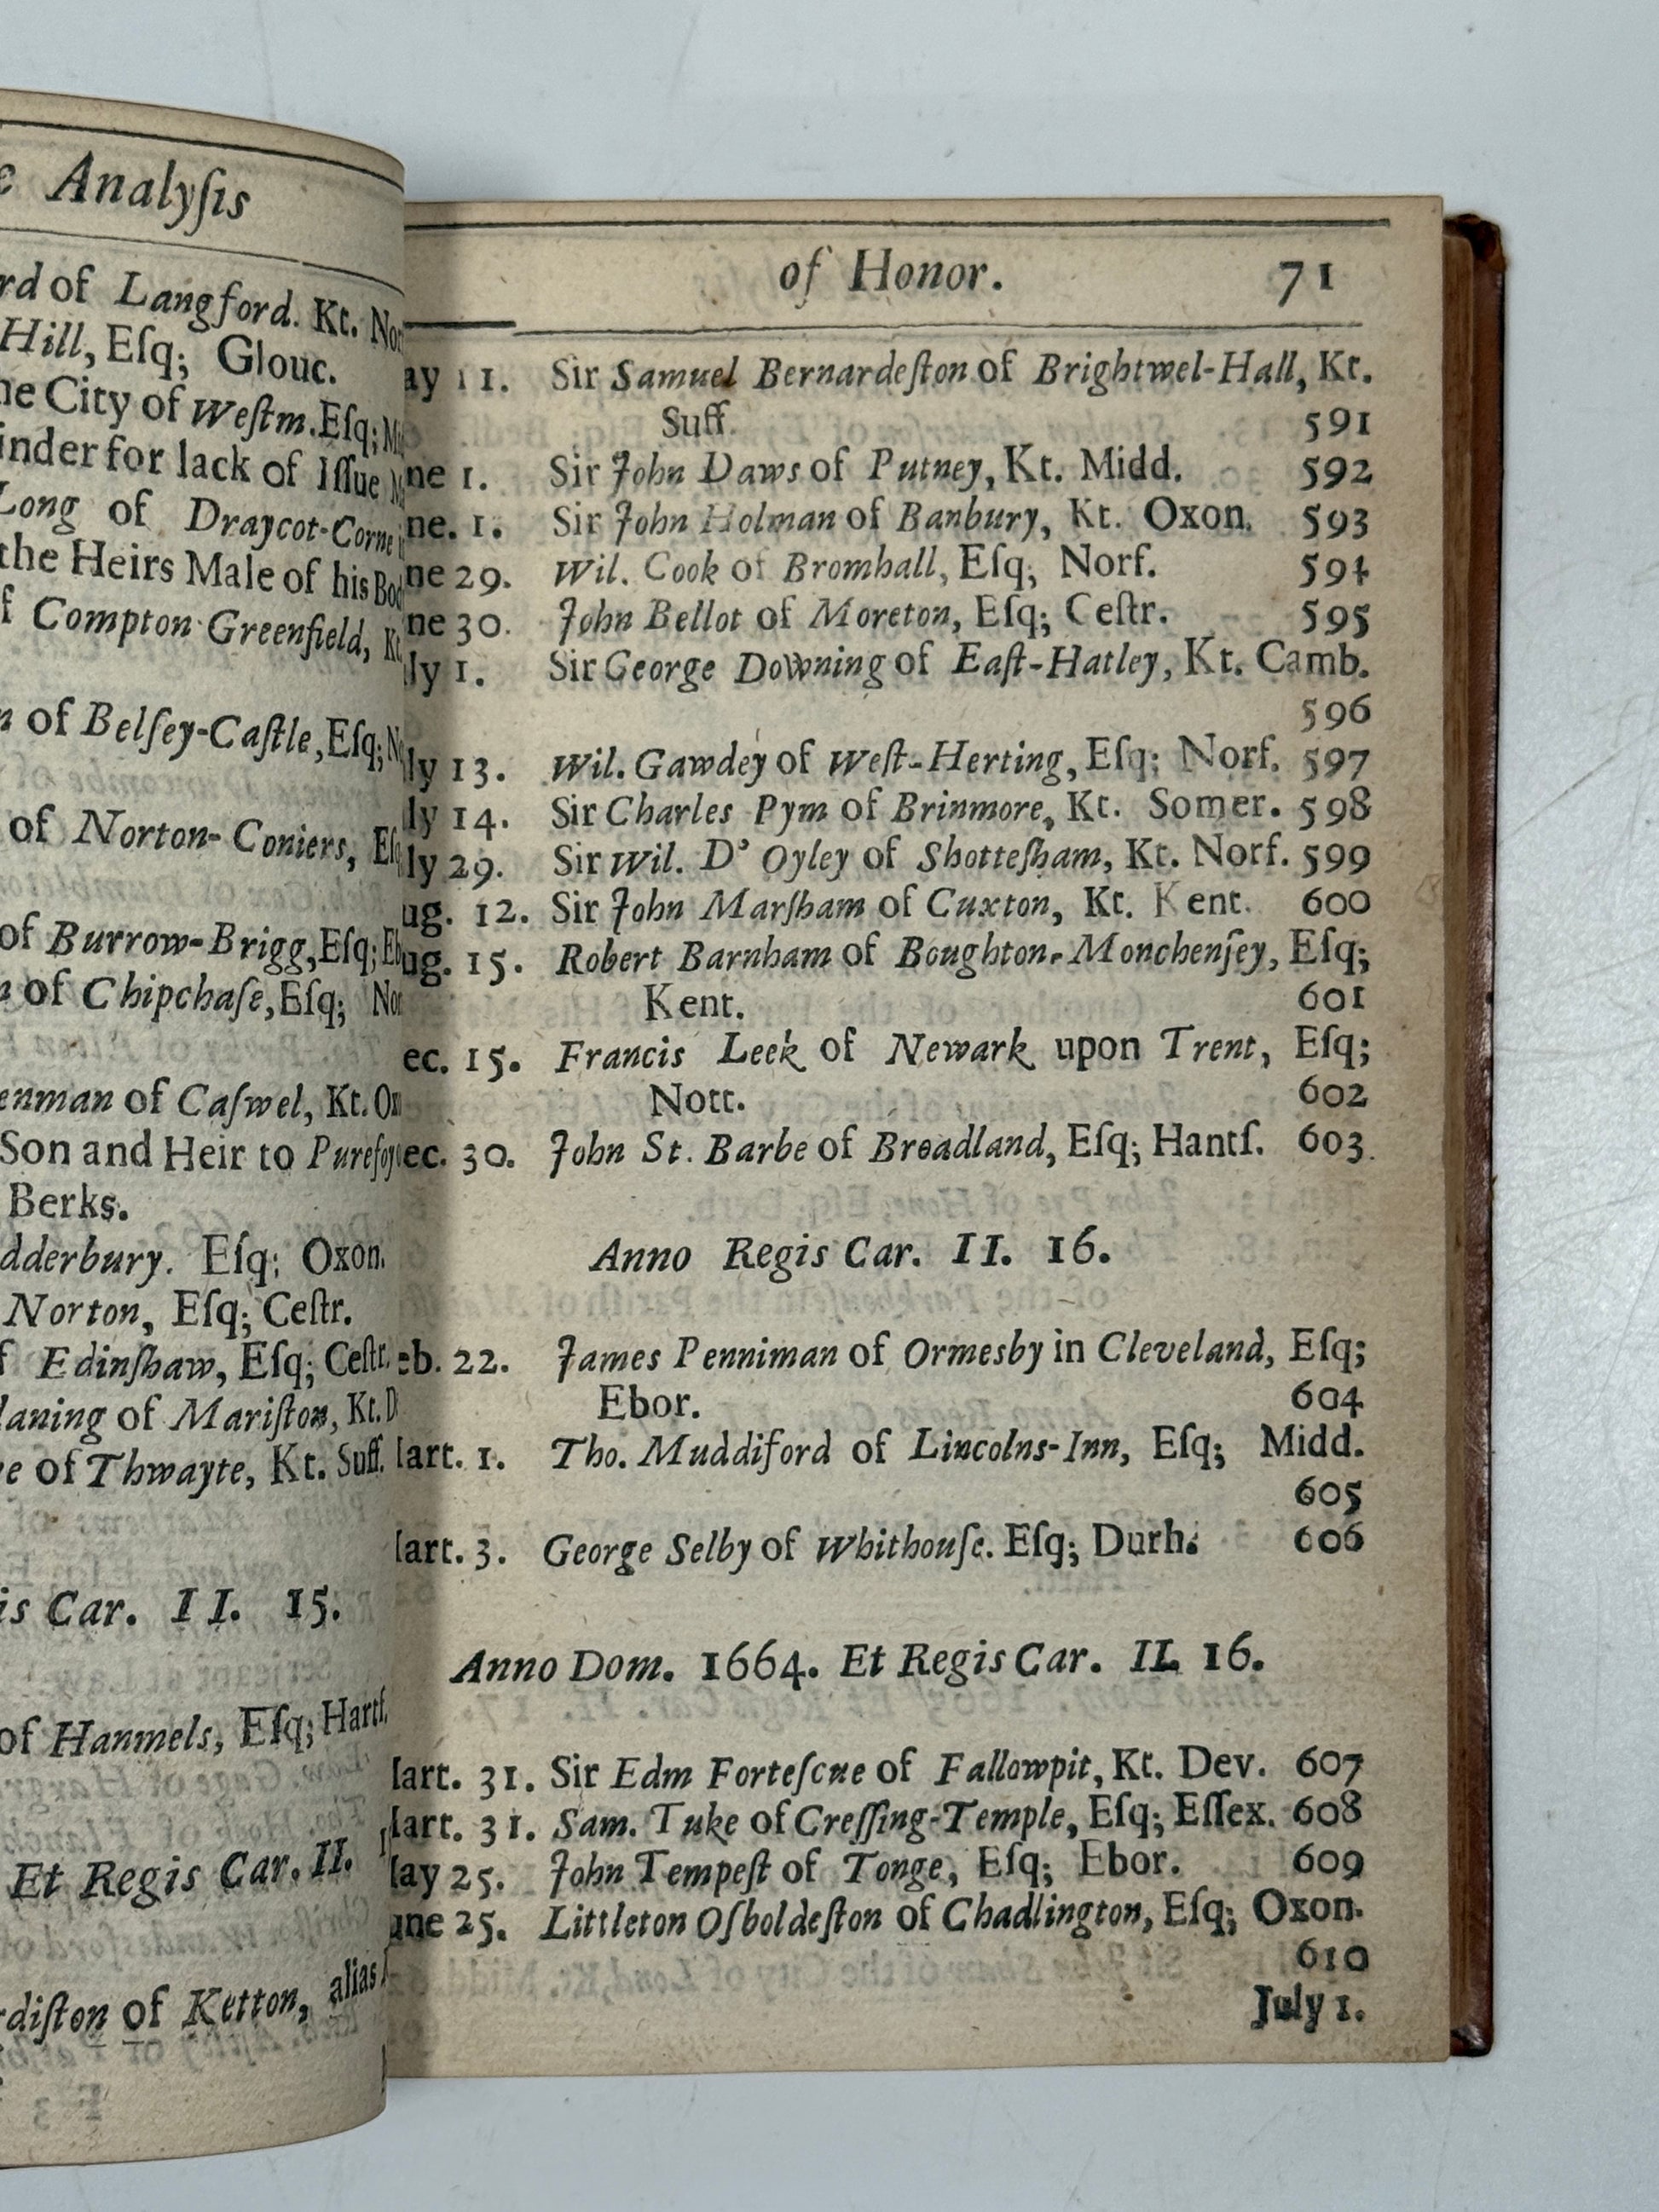 Analyſis
of Langford. Kt.
Hill, Eſq; Glouc.
City of Weſtm. Eſq;
for lack of Iſſue
Long of Draycot-Corne
the Heirs Male of his
Compton Greenfield,
of Belſey-Caſtle, Eſq;
of Norton-Coniers,
of Burrow-Brigg, Eſq;
of Chipchaſe, Eſq;
of Caſwel, Kt.
Son and Heir to
Berks.
dderbury. Eſq; Oxon.
Norton, Eſq; Ceſtr.
Edinſhaw, Eſq; Ceſtr.
of Mariſton, Kt.
of Thwayte, Kt. Suff.
Car. II. 15.
of Hanmels, Eſq; Hartſ.
Et Regis Car. II.
of Ketton, alias
of Honor. 71
ay 11. Sir Samuel Bernardeſton of Brightwel-Hall, Kt.
Suff. 591
ne 1. Sir John Daws of Putney, Kt. Midd. 592
ne. 1. Sir John Holman of Banbury, Kt. Oxon. 593
ne 29. Wil. Cook of Bromhall, Eſq; Norf. 594
ne 30. John Bellot of Moreton, Eſq; Ceſtr. 595
ly 1. Sir George Downing of Eaſt-Hatley, Kt. Camb.
596
ly 13. Wil. Gawdey of Weſt-Herting, Eſq; Norf. 597
ly 14. Sir Charles Pym of Brinmore, Kt. Somer. 598
ly 29. Sir Wil. D' Oyley of Shotteſham, Kt. Norf. 599
ug. 12. Sir John Marſham of Cuxton, Kt. Kent. 600
ug. 15. Robert Barnham of Boughton-Monchenſey, Eſq;
Kent. 601
ec. 15. Francis Leek of Newark upon Trent, Eſq;
Nott. 602
ec. 30. John St. Barbe of Broadland, Eſq; Hantſ. 603.
Anno Regis Car. II. 16.
eb. 22. James Penniman of Ormesby in Cleveland, Eſq;
Ebor. 604
art. 1. Tho. Muddiford of Lincolns-Inn, Eſq; Midd.
605
art. 3. George Selby of Whithouſe. Eſq; Durh. 606
Anno Dom. 1664. Et Regis Car. II. 16.
art. 31. Sir Edm Forteſcue of Fallowpit, Kt. Dev. 607
art. 31. Sam. Tuke of Creſſing-Temple, Eſq; Eſſex. 608
ay 25. John Tempeſt of Tonge, Eſq; Ebor. 609
une 25. Littleton Oſboldeſton of Chadlington, Eſq; Oxon.
610
July 1.